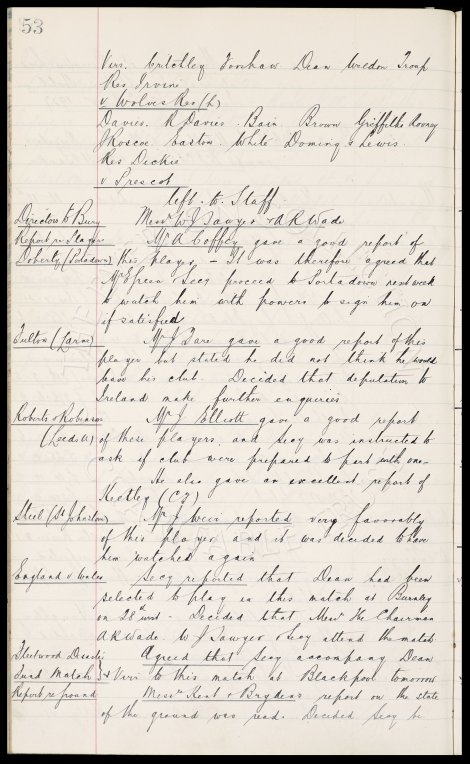 53
Virr. Critchley Forshaw. Dean Weldon Troup
Res Irvine
v Wolves Res (h)
Davies. R Davies. Bain. Brown Griffiths Rooney
J Roscoe. Easton. White Doming & Lewis.
Res Dickie
v Prescot
left to Staff.
Directors to Bury Messrs W J Sawyer & A R Wade
Report re Player Mr A Coffey gave a good report of
Doherty (Portadown) this player, – It was therefore agreed that
Mr Green & Secy proceed to Portadown next week
to watch him with powers to sign him on
if satisfied
Fulton (Larne) Mr J Tare gave a good report of this
player but stated he did not think he would
leave his club. Decided that deputation to
Ireland make further enquiries
Roberts & Robinson Mr J Elliott gave a good report
(Leeds U) of these players, and Secy was instructed to
ask if club were prepared to part with one
He also gave an excellent report of
Keetley (C.F)
Steel (St Johnstone) Mr J Weir reported very favorably
of this player and it was decided to have
him watched again
England v Wales Secy reported that Dean had been
selected to play in this match at Burnley
on 28th inst. Decided that Messrs The Chairman
A R Wade W J Sawyer & Secy attend the match
Fleetwood Agreed that Secy accompany Dean
Fund Match } & Virr to this match at Blackpool tomorrow
Report re ground Messrs Kent & Brydens report on the state
of the ground was read. Decided Secy be